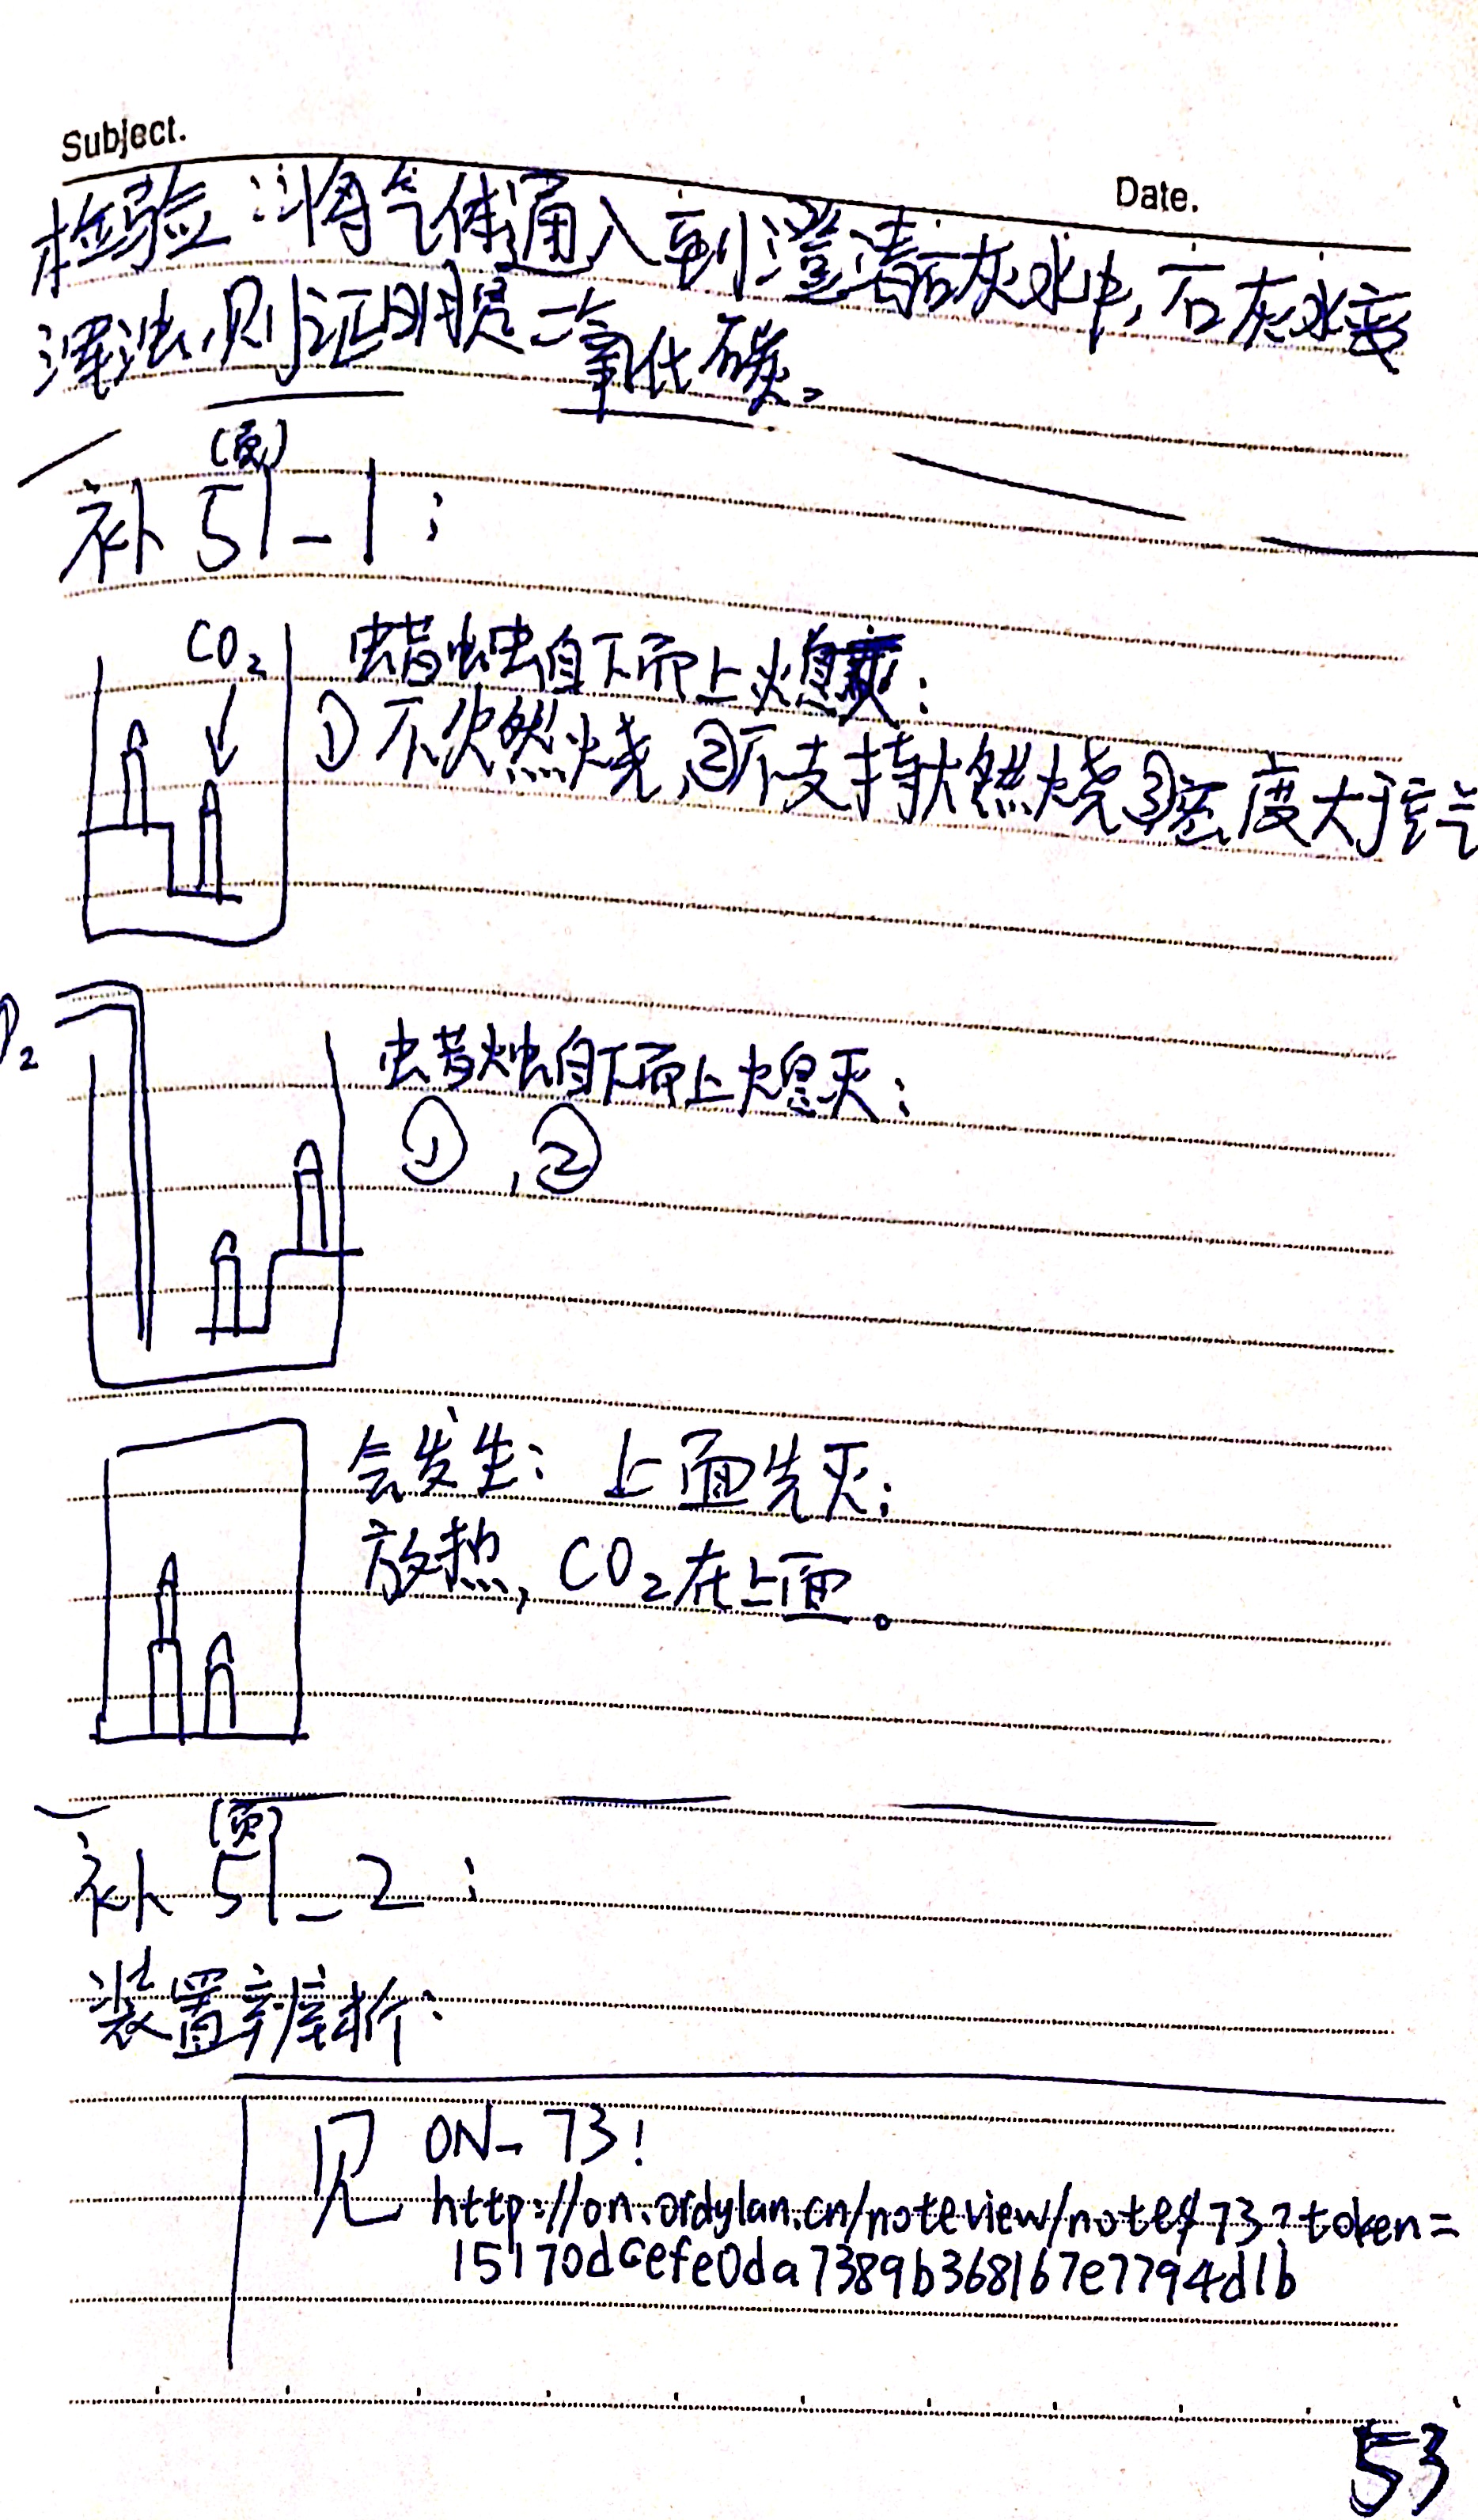 Subject.
Date.
检验:将气体通入到澄清石灰水中,石灰水变
浑浊,则证明是二氧化碳。
(页)
补 51-1:
CO₂
蜡烛自下而上熄灭:
①不燃烧,②不支持燃烧③密度大于空气
O₂
蜡烛自下而上熄灭:
①,②
会发生:上面先灭:
放热,CO₂在上面。
(页)
补 51-2:
装置辨析:
见 ON-73!
http://on.ordylan.cn/noteview/note/73?token=
15170dcefe0da7389b368167e7794d1b
53